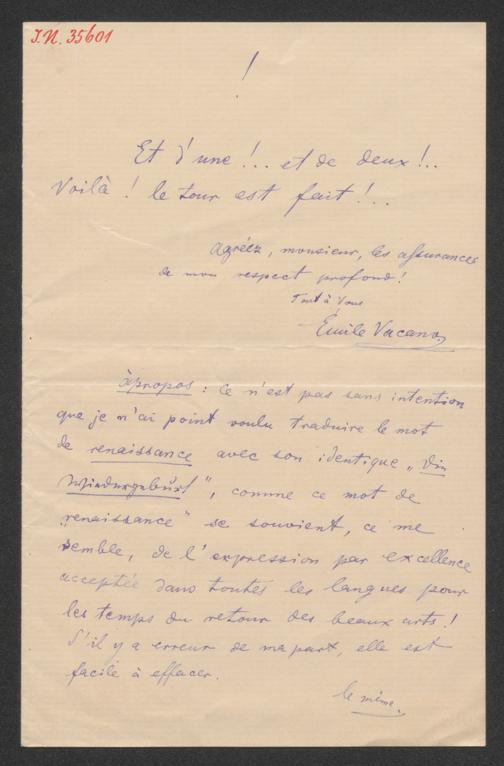 I.N. 35601
!
Et d'une !.. et de deux !..
Voilà ! le tour est fait !..
agréez, monsieur, les assurances
de mon respect profond !
Tout à Vous
Émile Vacano
àpropos : Ce n'est pas sans intention
que je n'ai point voulu traduire le mot
de renaissance avec son identique „die
Wiedergeburt", comme ce mot de
„renaissance" se souvient, ce me
semble, de l'expression par excellence
acceptée dans toutes les langues pour
les temps du retour des beaux arts !
S'il y a erreur de ma part, elle est
facile à effacer.
le même.